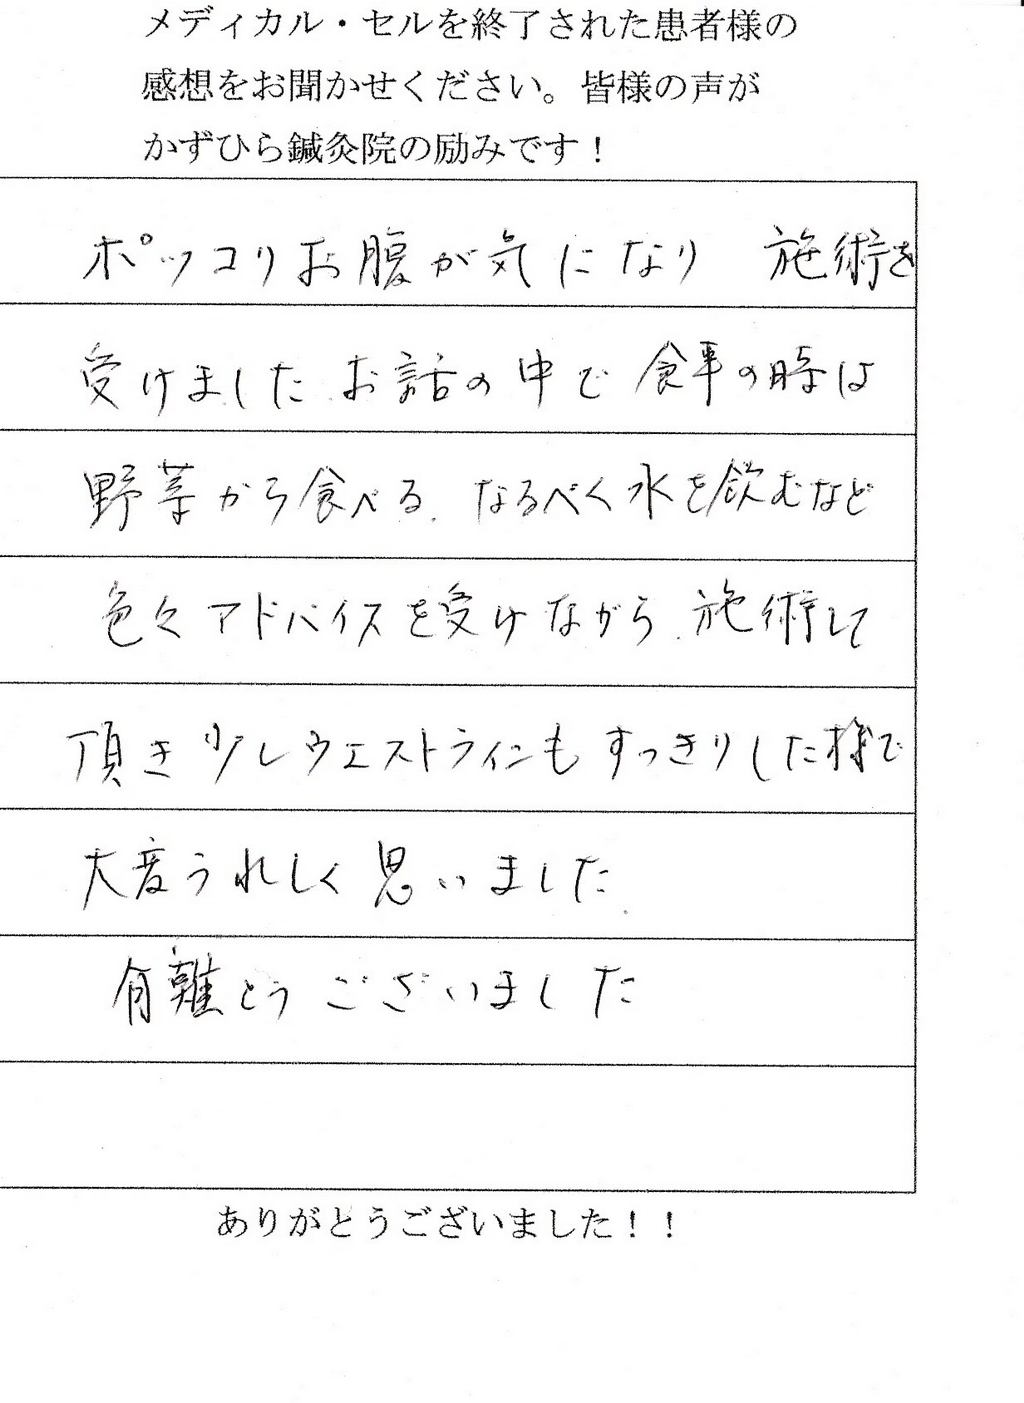 メディカル・セルを終了された患者様の
感想をお聞かせください。皆様の声が
かずひら鍼灸院の励みです！
ポッコリお腹が気になり 施術を
受けました お話の中で 食事の時は
野菜から食べる. なるべく水を飲むなど
色々アドバイスを受けながら. 施術して
頂き 少しウエストラインもすっきりした様で
大変うれしく思いました.
有難とうございました
ありがとうございました！！